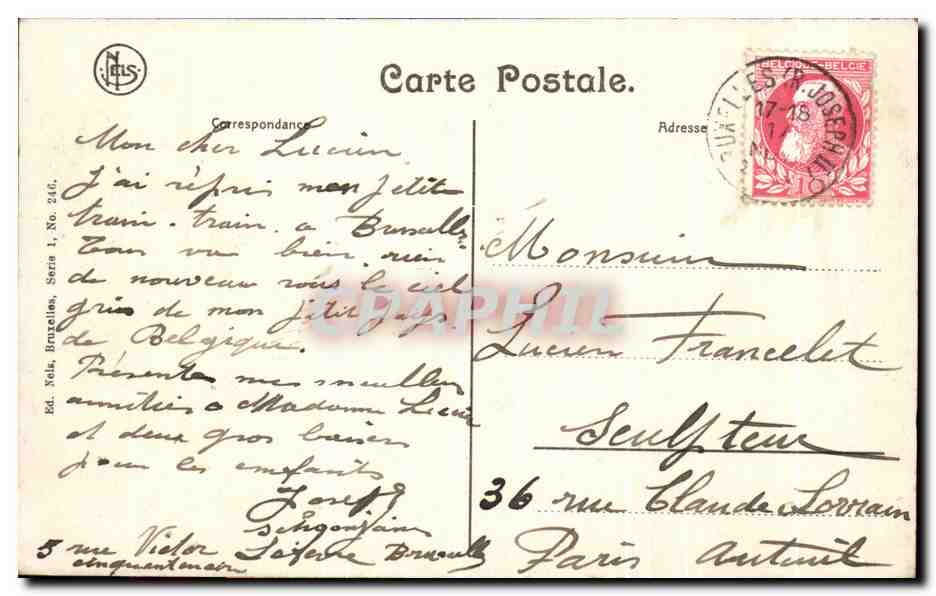 NELS
Carte Postale.
Correspondance
Adresse
BELGIQUE-BELGIE
BRUXELLES (R. JOSEPH II)
17-18
10
Ed. Nels, Bruxelles, Serie 1, No. 246.
Mon cher Lucien
J'ai répris mon petit
train-train a Bruxelles
Tous va bien rien
de nouveau sous le ciel
gris de mon petit pays
de Belgique.
Présente mes meilleurs
amitiés a Madame Lucien
et deux gros baisers
pour les enfants
Joseph
5 rue Victor Lefevre Bruxelles
cinquantenaire
Monsieur
Lucien Francelet
Sculpteur
36 rue Claude Lorrain
Paris Auteuil
CPAPHIL